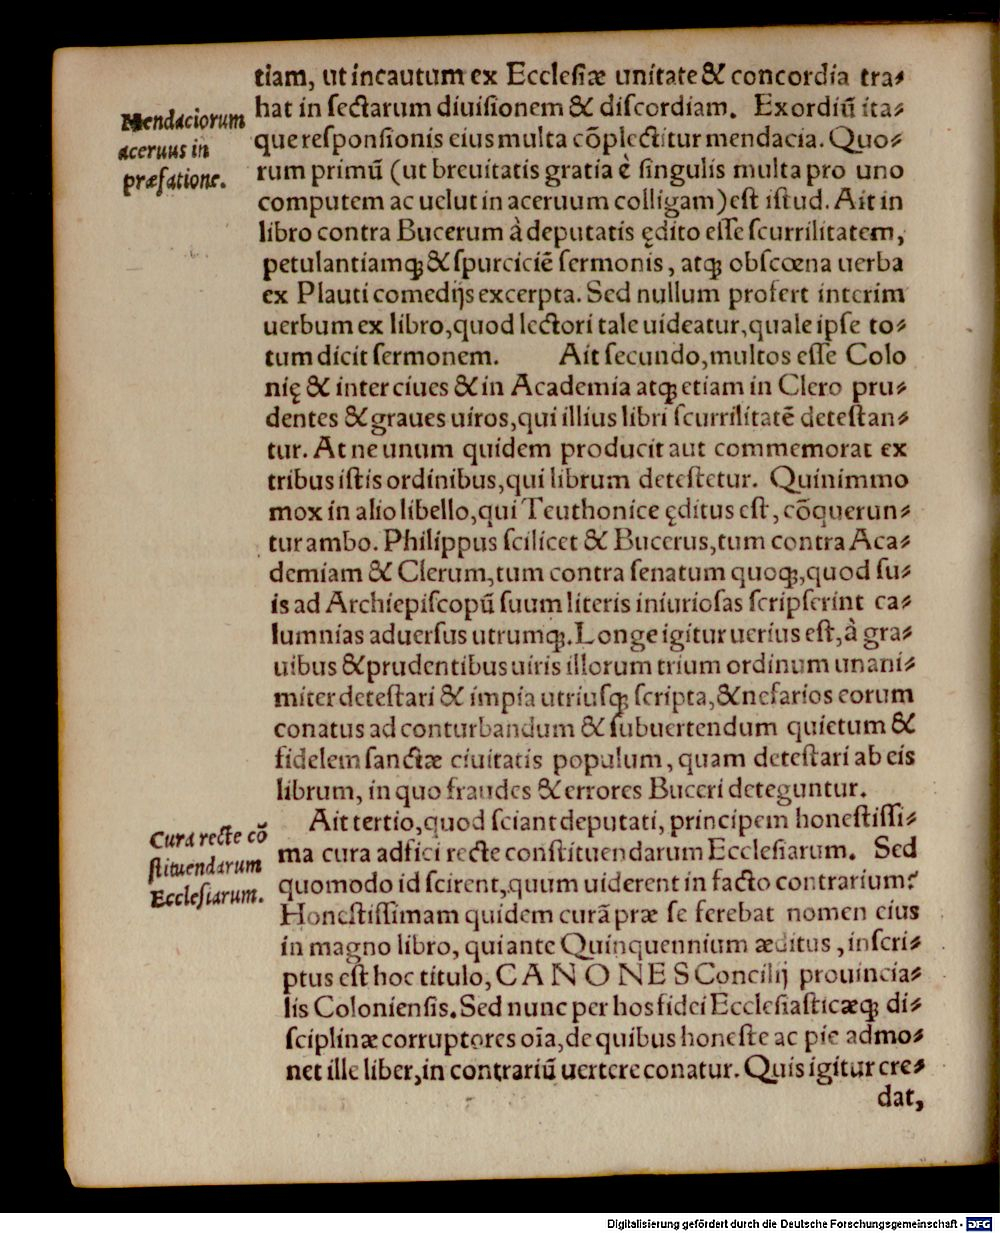 tiam, ut incautum ex Ecclesiæ unitate & concordia tra⸗
hat in sectarum diuisionem & discordiam. Exordiū ita⸗
Mendaciorum
aceruus in
præfatione.
que responsionis eius multa cōplectitur mendacia. Quo⸗
rum primū (ut breuitatis gratia è singulis multa pro uno
computem ac uelut in aceruum colligam) est istud. Ait in
libro contra Bucerum à deputatis ędito esse scurrilitatem,
petulantiamq; & spurciciē sermonis, atq; obscœna uerba
ex Plauti comedijs excerpta. Sed nullum profert interim
uerbum ex libro, quod lectori tale uideatur, quale ipse to⸗
tum dicit sermonem. Ait secundo, multos esse Colo
nię & inter ciues & in Academia atq; etiam in Clero pru⸗
dentes & graues uiros, qui illius libri scurrilitatē detestan⸗
tur. At ne unum quidem producit aut commemorat ex
tribus istis ordinibus, qui librum detestetur. Quinimmo
mox in alio libello, qui Teuthonice ęditus est, cōquerun⸗
tur ambo. Philippus scilicet & Bucerus, tum contra Aca⸗
demiam & Clerum, tum contra senatum quoq;, quod su⸗
is ad Archiepiscopū suum literis iniuriosas scripserint ca⸗
lumnias aduersus utrumq;. Longe igitur uerius est, à gra⸗
uibus & prudentibus uiris illorum trium ordinum unani⸗
miter detestari & impia utriusq; scripta, & nefarios eorum
conatus ad conturbandum & subuertendum quietum &
fidelem sanctæ ciuitatis populum, quam detestari ab eis
librum, in quo fraudes & errores Buceri deteguntur.
Ait tertio, quod sciant deputati, principem honestissi⸗
Cura recte cō
stituendarum
Ecclesiarum.
ma cura adfici recte constituendarum Ecclesiarum. Sed
quomodo id scirent, quum uiderent in facto contrarium?
Honestissimam quidem curā præ se ferebat nomen eius
in magno libro, qui ante Quinquennium æditus, inscri⸗
ptus est hoc titulo, CANONES Concilij prouincia⸗
lis Coloniensis. Sed nunc per hos fidei Ecclesiasticæq; di⸗
sciplinæ corruptores oīa, de quibus honeste ac pie admo⸗
net ille liber, in contrariū uertere conatur. Quis igitur cre⸗
dat,
Digitalisierung gefördert durch die Deutsche Forschungsgemeinschaft - DFG